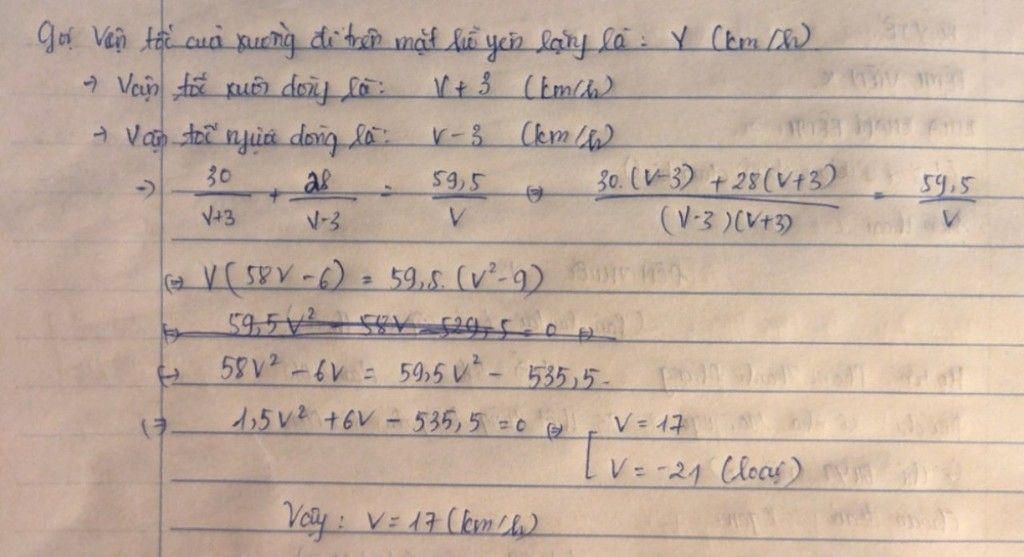 Gọi vận tốc của xuồng đi trên mặt hồ yên lặng là : V (km/h)
→ Vận tốc xuôi dòng là: V+3 (km/h)
→ Vận tốc ngược dòng là: V-3 (km/h)
→ 30/(V+3) + 28/(V-3) = 59,5/V ⇔ (30.(V-3) + 28(V+3))/((V-3)(V+3)) = 59,5/V
⇔ V(58V-6) = 59,5.(V²-9)
⇔ 58V² - 6V = 59,5V² - 535,5
⇔ 1,5V² + 6V - 535,5 = 0 ⇔ [ V = 17
V = -21 (loại)
Vậy : V = 17 (km/h)